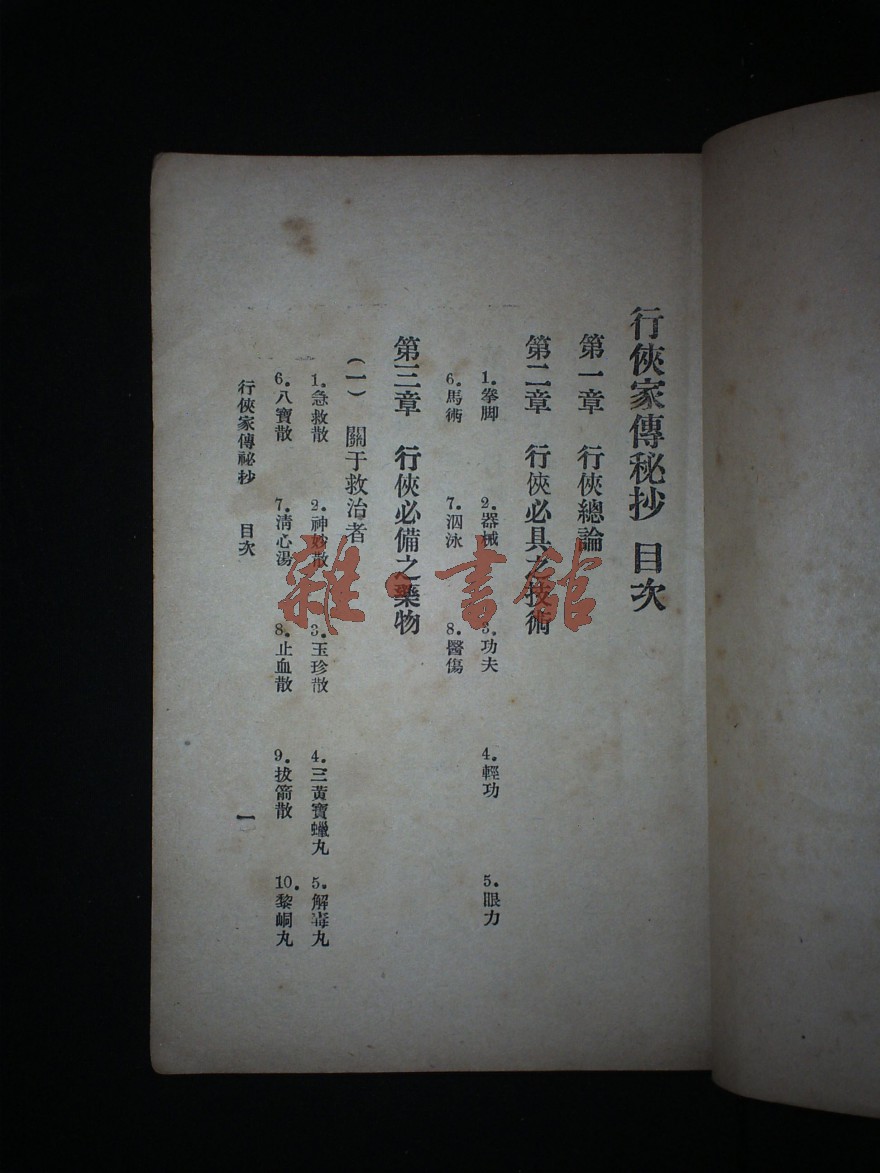 行俠家傳秘抄 目次
第一章 行俠總論
第二章 行俠必具之技術
1.拳脚 2.器械 3.功夫 4.輕功 5.眼力
6.馬術 7.泅泳 8.醫傷
第三章 行俠必備之藥物
(一) 關于救治者
1.急救散 2.神妙散 3.玉珍散 4.三黃寶蠟丸 5.解毒丸
6.八寶散 7.清心湯 8.止血散 9.拔箭散 10.黎峒丸
行俠家傳秘抄 目次 一
雜·書館